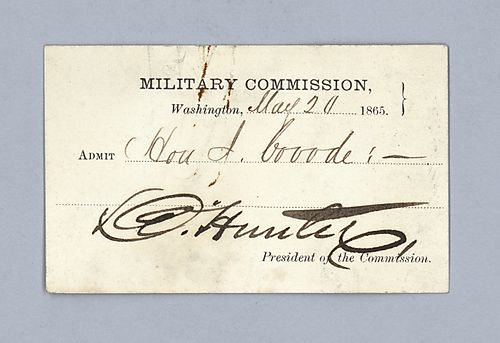 MILITARY COMMISSION,
Washington, May 20 1865.
ADMIT Hon J. Covode :—
D. Hunter,
President of the Commission.